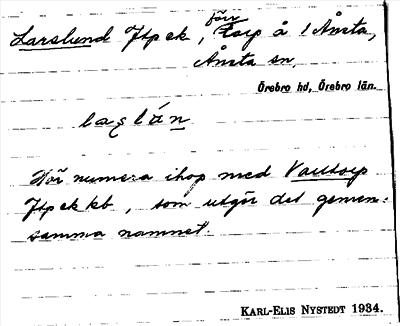 Larslund Jtpek, förr
Torp å 1 Ånsta,
Ånsta sn,
Örebro hd, Örebro län.
Hör numera ihop med
Jtpekkb, som utgör det gemen-
samma namnet.
KARL-ELIS NYSTEDT 1934.